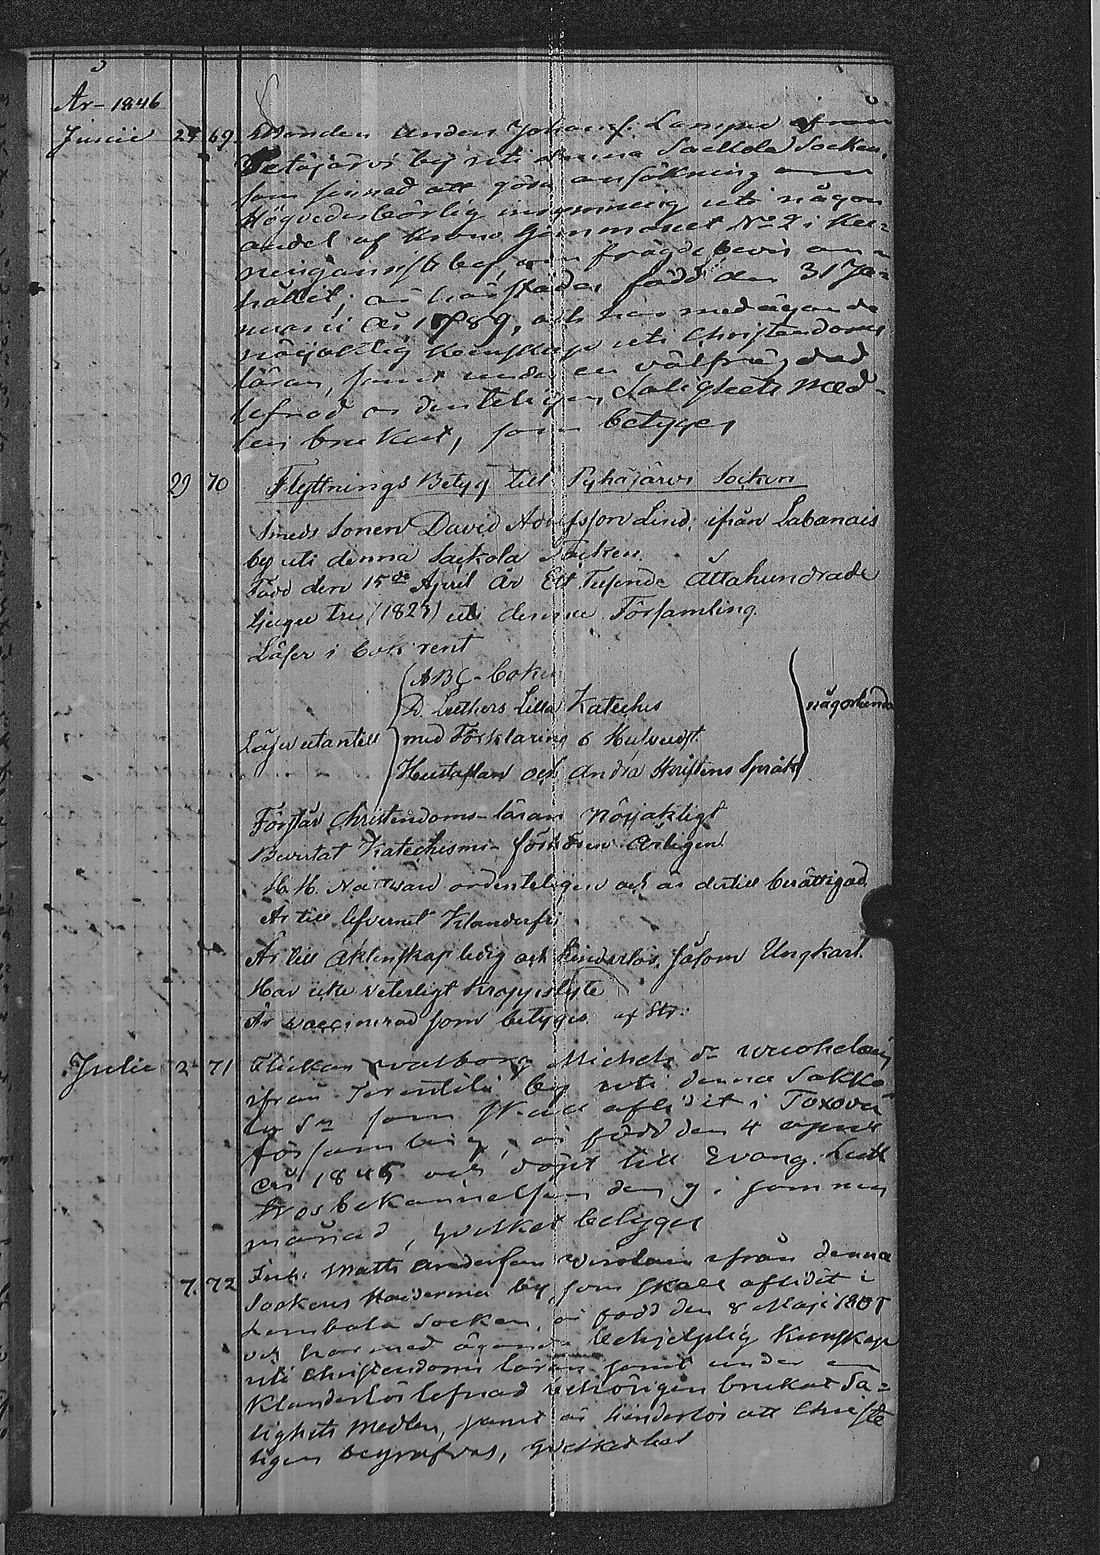 År 1846
Junii 27 69. Bonden Anders Johansf. Lampu ifrån
by uti denna Sakkola Socken,
som sinnad att göra ansökning om
Högvederbörlig insynning uti någon
andel af Krono Hemmanet No 2 i
by, om frägdebevis an-
hållit, är härstädes född den 31 Ja-
nuarii år 1789, och har med ägande
nöjaktig Kunskap uti Christendoms
läran, samt under en välfräjdad
lefnad ordenteligen Salighets Med-
len brukat, som betyges
29 70 Flyttnings Betyg till Pyhäjärvi Socken
Smeds Sonen David Adolfsson Lind, ifrån Labanais
by uti denna Sackola Socken.
Född den 15de April År Ett Tusende Åttahundrade
tjugu tre (1823) uti denna Församling
Läser i bok rent
ABC-boken
D. Luthers Lilla Kateches
någorlunda
Läser utantill med Förklaring 6 Hufvudst.
Hustaflan och Andra Skriftens Språk
Förstår Christendoms-läran Nöjaktigt
Bevistat Katechismi-förhören årligen
H. H. Nattvard ordenteligen och är dertill berättigad
Är till lefvernet Klanderfri
Är till Äktenskap ledig och hinderlös såsom Ungkarl.
Har icke veterligt Kroppslyte
Är vaccinerad som betyges af Str:
Julii 2 71 Flickan Walborg Michels dr
ifrån by uti denna Sakko-
la Sn som skall aflidit i Toxova
församling, är född den 4 April
år 1845 och döpt till Evang. Luth
trosbekännelsen den 9 i samma
månad, hvilket betyges
7. 72 Inh. Matts Andersson ifrån denna
Sockens by, som skall aflidit i
Lembala Socken, är född den 8 Maji 1805
och har med ägande behjelplig Kunskap
uti Christendoms läran samt under en
Klanderlös lefnad behörigen brukat Sa-
lighets Medlen, samt är hinderlös att Christe-
ligen begrafvas,